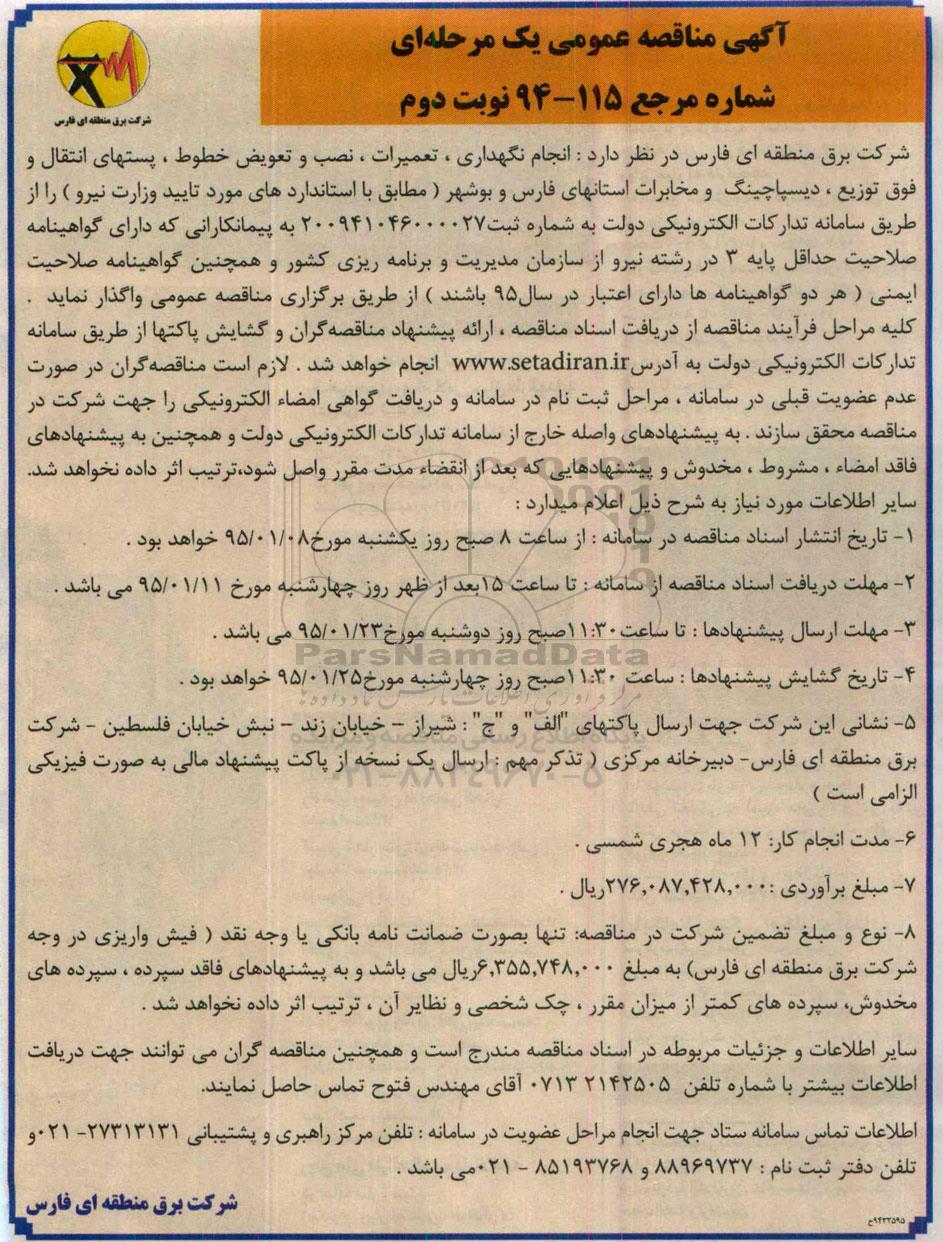 آگهی مناقصه عمومی یک مرحله‌ای
شماره مرجع ۱۱۵-۹۴ نوبت دوم
شرکت برق منطقه ای فارس
شرکت برق منطقه ای فارس در نظر دارد : انجام نگهداری ، تعمیرات ، نصب و تعویض خطوط ، پستهای انتقال و
فوق توزیع ، دیسپاچینگ و مخابرات استانهای فارس و بوشهر ( مطابق با استاندارد های مورد تایید وزارت نیرو ) را از
طریق سامانه تدارکات الکترونیکی دولت به شماره ثبت۲۰۰۹۴۱۰۴۶۰۰۰۰۲۷ به پیمانکارانی که دارای گواهینامه
صلاحیت حداقل پایه ۳ در رشته نیرو از سازمان مدیریت و برنامه ریزی کشور و همچنین گواهینامه صلاحیت
ایمنی ( هر دو گواهینامه ها دارای اعتبار در سال۹۵ باشند ) از طریق برگزاری مناقصه عمومی واگذار نماید .
کلیه مراحل فرآیند مناقصه از دریافت اسناد مناقصه ، ارائه پیشنهاد مناقصه‌گران و گشایش پاکتها از طریق سامانه
تدارکات الکترونیکی دولت به آدرس www.setadiran.ir انجام خواهد شد . لازم است مناقصه‌گران در صورت
عدم عضویت قبلی در سامانه ، مراحل ثبت نام در سامانه و دریافت گواهی امضاء الکترونیکی را جهت شرکت در
مناقصه محقق سازند . به پیشنهادهای واصله خارج از سامانه تدارکات الکترونیکی دولت و همچنین به پیشنهادهای
فاقد امضاء ، مشروط ، مخدوش و پیشنهادهایی که بعد از انقضاء مدت مقرر واصل شود،ترتیب اثر داده نخواهد شد.
سایر اطلاعات مورد نیاز به شرح ذیل اعلام میدارد :
۱- تاریخ انتشار اسناد مناقصه در سامانه : از ساعت ۸ صبح روز یکشنبه مورخ۹۵/۰۱/۰۸ خواهد بود .
۲- مهلت دریافت اسناد مناقصه از سامانه : تا ساعت ۱۵بعد از ظهر روز چهارشنبه مورخ ۹۵/۰۱/۱۱ می باشد .
۳- مهلت ارسال پیشنهادها : تا ساعت۱۱:۳۰صبح روز دوشنبه مورخ۹۵/۰۱/۲۳ می باشد .
ParsNamadData
۴- تاریخ گشایش پیشنهادها : ساعت ۱۱:۳۰صبح روز چهارشنبه مورخ۹۵/۰۱/۲۵ خواهد بود .
۵- نشانی این شرکت جهت ارسال پاکتهای "الف" و "ج" : شیراز – خیابان زند – نبش خیابان فلسطین - شرکت
برق منطقه ای فارس- دبیرخانه مرکزی ( تذکر مهم : ارسال یک نسخه از پاکت پیشنهاد مالی به صورت فیزیکی
۰۲۱-۸۸۳۴۹۶۷۰-۵
الزامی است )
۶- مدت انجام کار: ۱۲ ماه هجری شمسی .
۷- مبلغ برآوردی :۲۷۶,۰۸۷,۴۲۸,۰۰۰ریال .
۸- نوع و مبلغ تضمین شرکت در مناقصه: تنها بصورت ضمانت نامه بانکی یا وجه نقد ( فیش واریزی در وجه
شرکت برق منطقه ای فارس) به مبلغ ۶,۳۵۵,۷۴۸,۰۰۰ریال می باشد و به پیشنهادهای فاقد سپرده ، سپرده های
مخدوش، سپرده های کمتر از میزان مقرر ، چک شخصی و نظایر آن ، ترتیب اثر داده نخواهد شد .
سایر اطلاعات و جزئیات مربوطه در اسناد مناقصه مندرج است و همچنین مناقصه گران می توانند جهت دریافت
اطلاعات بیشتر با شماره تلفن ۲۱۴۲۵۰۵ ۰۷۱۳ آقای مهندس فتوح تماس حاصل نمایند.
اطلاعات تماس سامانه ستاد جهت انجام مراحل عضویت در سامانه : تلفن مرکز راهبری و پشتیبانی ۲۷۳۱۳۱۳۱- ۰۲۱و
تلفن دفتر ثبت نام : ۸۸۹۶۹۷۳۷ و ۸۵۱۹۳۷۶۸ - ۰۲۱می باشد .
شرکت برق منطقه ای فارس
۹۴۳۳۵۹۵ج